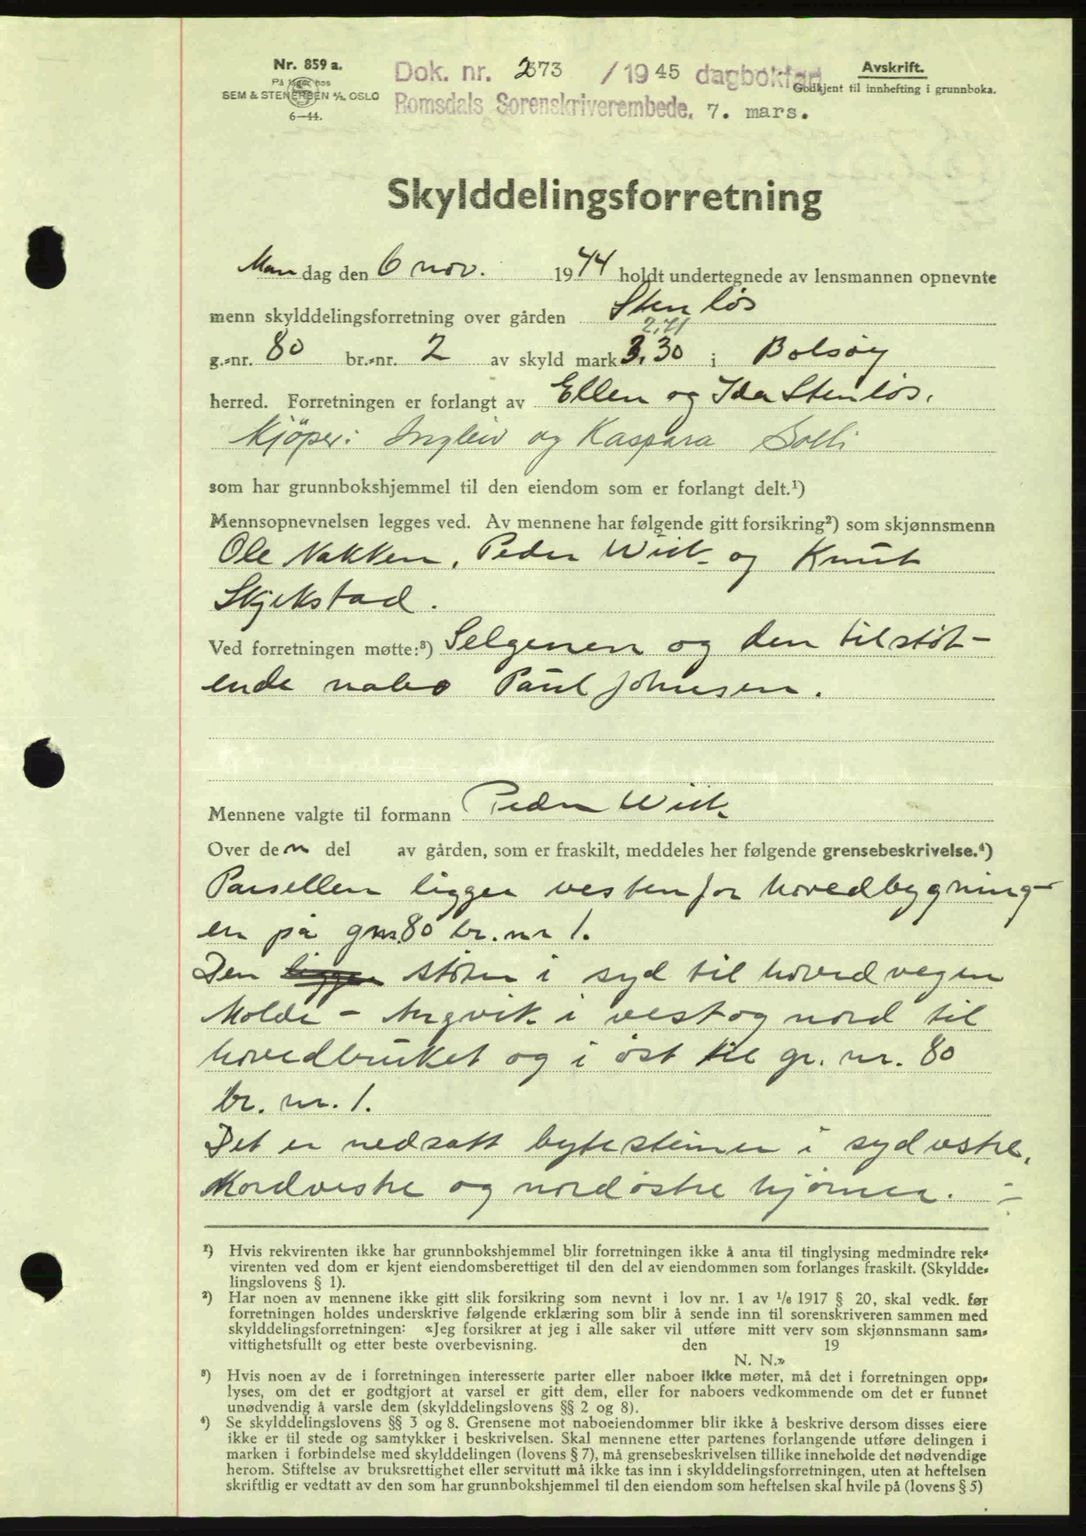 Nr. 859 a.
På lager hos
SEM & STENERSEN A/S, OSLO
6—44.
Dok. nr. 2673 / 1945 dagbokført
Romsdals Sorenskriverembede, 7. mars.
Avskrift.
Godkjent til innhefting i grunnboka.
Skylddelingsforretning
Man dag den 6 nov. 1944 holdt undertegnede av lensmannen opnevnte
menn skylddelingsforretning over gården Stenløs
2,71
g.-nr. 80 br.-nr. 2 av skyld mark 3,30 i Bolsøy
herred. Forretningen er forlangt av Ellen og Ida Stenløs.
Kjöper: Ingleiv og Kaspara Solli
som har grunnbokshjemmel til den eiendom som er forlangt delt.¹)
Mennsopnevnelsen legges ved. Av mennene har følgende gitt forsikring²) som skjønnsmenn
Ole Nakken, Peder Wiik og Knut
Skjekstad.
Ved forretningen møtte:³) Selgeren og den tilstöt-
ende nabo Paul Johnsen.
Mennene valgte til formann Peder Wiik
Over den del av gården, som er fraskilt, meddeles her følgende grensebeskrivelse.⁴)
Parsellen ligger vestenfor hovedbygning-
en på gnr. 80 br. nr 1.
Den ligger støter i syd til hovedvegen
Molde - Angvik i vest og nord til
hovedbruket og i öst til gr. nr. 80
br. nr. 1.
Det er nedsatt bytesteiner i sydvestre,
Nordvestre og nordöstre hjörner. -:-
¹) Hvis rekvirenten ikke har grunnbokshjemmel blir forretningen ikke å anta til tinglysing medmindre rek-
virenten ved dom er kjent eiendomsberettiget til den del av eiendommen som forlanges fraskilt. (Skyldde-
lingslovens § 1).
²) Har noen av mennene ikke gitt slik forsikring som nevnt i lov nr. 1 av 1/6 1917 § 20, skal vedk. før
forretningen holdes underskrive følgende erklæring som blir å sende inn til sorenskriveren sammen med
skylddelingsforretningen: «Jeg forsikrer at jeg i alle saker vil utføre mitt verv som skjønnsmann sam-
vittighetsfullt og etter beste overbevisning. den 19
N. N.»
³) Hvis noen av de i forretningen interesserte parter eller naboer ikke møter, må det i forretningen opp-
lyses, om det er godtgjort at varsel er gitt dem, eller for naboers vedkommende om det er funnet
unødvendig å varsle dem (skylddelingslovens §§ 2 og 8).
⁴) Se skylddelingslovens §§ 3 og 8. Grensene mot naboeiendommer blir ikke å beskrive dersom disses eiere
ikke er til stede og samtykker i beskrivelsen. Skal mennene etter partenes forlangende utføre delingen i
marken i forbindelse med skylddelingen (lovens § 7), må grensebeskrivelsen tillike inneholde det nødvendige
herom. Stiftelse av bruksrettighet eller servitutt må ikke tas inn i skylddelingsforretningen, uten at heftelsen
skriftlig er vedtatt av den som har grunnbokshjemmel til den eiendom som heftelsen skal hvile på (lovens § 5)